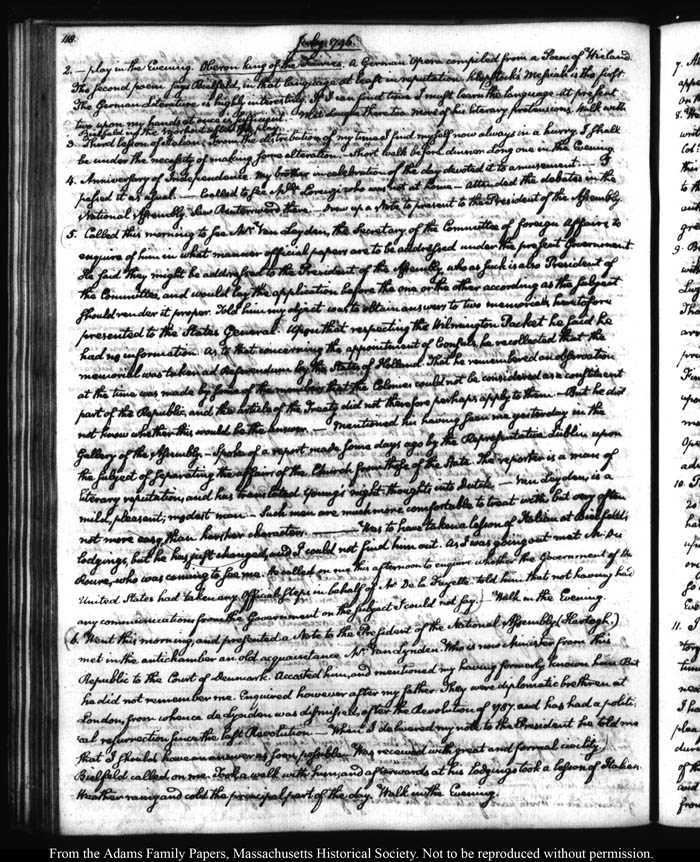 118.
July 1796.
2. — play in the Evening. Oberon king of the Fairies. A German Opera compiled from a Poem of Wieland
The second poem says Bielfeld, in that language at least in reputation. Klopstock's Messiah is the first.
The German literature is highly interesting. If I can find time I must learn the language. At present
two upon my hands at once is sufficient. Walk with
Bielfeld in the after the play.
3. Third lesson of Italian. From the distribution of my time I find myself now always in a hurry. I shall
be under the necessity of making some alteration. — Short walk before dinner. Long one in the Evening.
4. Anniversary of Independence. My brother in celebration of the day devoted it to amusement. — I
passed it as usual. — Called to see who was not at home — Attended the debates in the
National Assembly. Saw there. — Drew up a Note to present to the President of the Assembly.
5. Called this morning to see Mr. Van Leyden, the Secretary of the Committee of foreign Affairs, to
enquire of him in what manner official papers are to be addressed under the present Government.
He said they might be addressed to the President of the Assembly, who as such is also President of
the Committee, and would lay the application before the one or the other according as the subject
should render it proper. Told him my object was to obtain answers to two memorials, heretofore
presented to the States General. Upon that respecting the Wilmington Packet he said he
had no information. As to that concerning the appointment of Consuls, he recollected that the
memorial was taken ad Referendum by the States of Holland. That he remembered an observation
at the time was made by some of the members that the Colonies could not be considered as a constituent
part of the Republic, and the article of the Treaty did not therefore perhaps apply to them. — But he did
not know whether this would be the answer. — Mentioned his having seen me yesterday in the
Gallery of the Assembly. — Spoke of a report made some days ago by the Representative upon
the subject of separating the affairs of the Church from those of the State. The reporter is a man of
literary reputation, and has translated Young's night thoughts into Dutch. — Van Leyden, is a
mild, pleasant, modest man. — Such men are much more comfortable to treat with, but very often
not more easy, than harsher characters. — Was to have taken a lesson of Italian at Bielfeld's
lodgings, but he has just changed, and I could not find him out. As I was going out met Mr. De
who was coming to see me. He called on me this afternoon to enquire whether the Government of the
United States had taken any Official steps in behalf of Mr. De la Fayette. told him that not having had
any communications from the Government on the subject I could not say. — Walk in the Evening.
6. Went this morning, and presented a Note to the President of the National Assembly (Hartogh.)
met in the antichamber an old acquaintance Mr. Van Lynden. Who is now Minister from this
Republic to the Court of Denmark. Accosted him, and mentioned my having formerly known him. But
he did not remember me. Enquired however after my father. They were diplomatic brethren at
London, from whence de Lynden was dismissed, after the Revolution of 1787. and has had a politi-
cal resurrection since the last Revolution. — When I delivered my note to the President he told me
that I should have an answer as soon as possible. Was received with great and formal civility.
Bielfeld called on me. Took a walk with him, and afterwards at his lodgings took a lesson of Italian.
Weather rainy and cold the principal part of the day. Walk in the Evening.
From the Adams Family Papers, Massachusetts Historical Society. Not to be reproduced without permission.